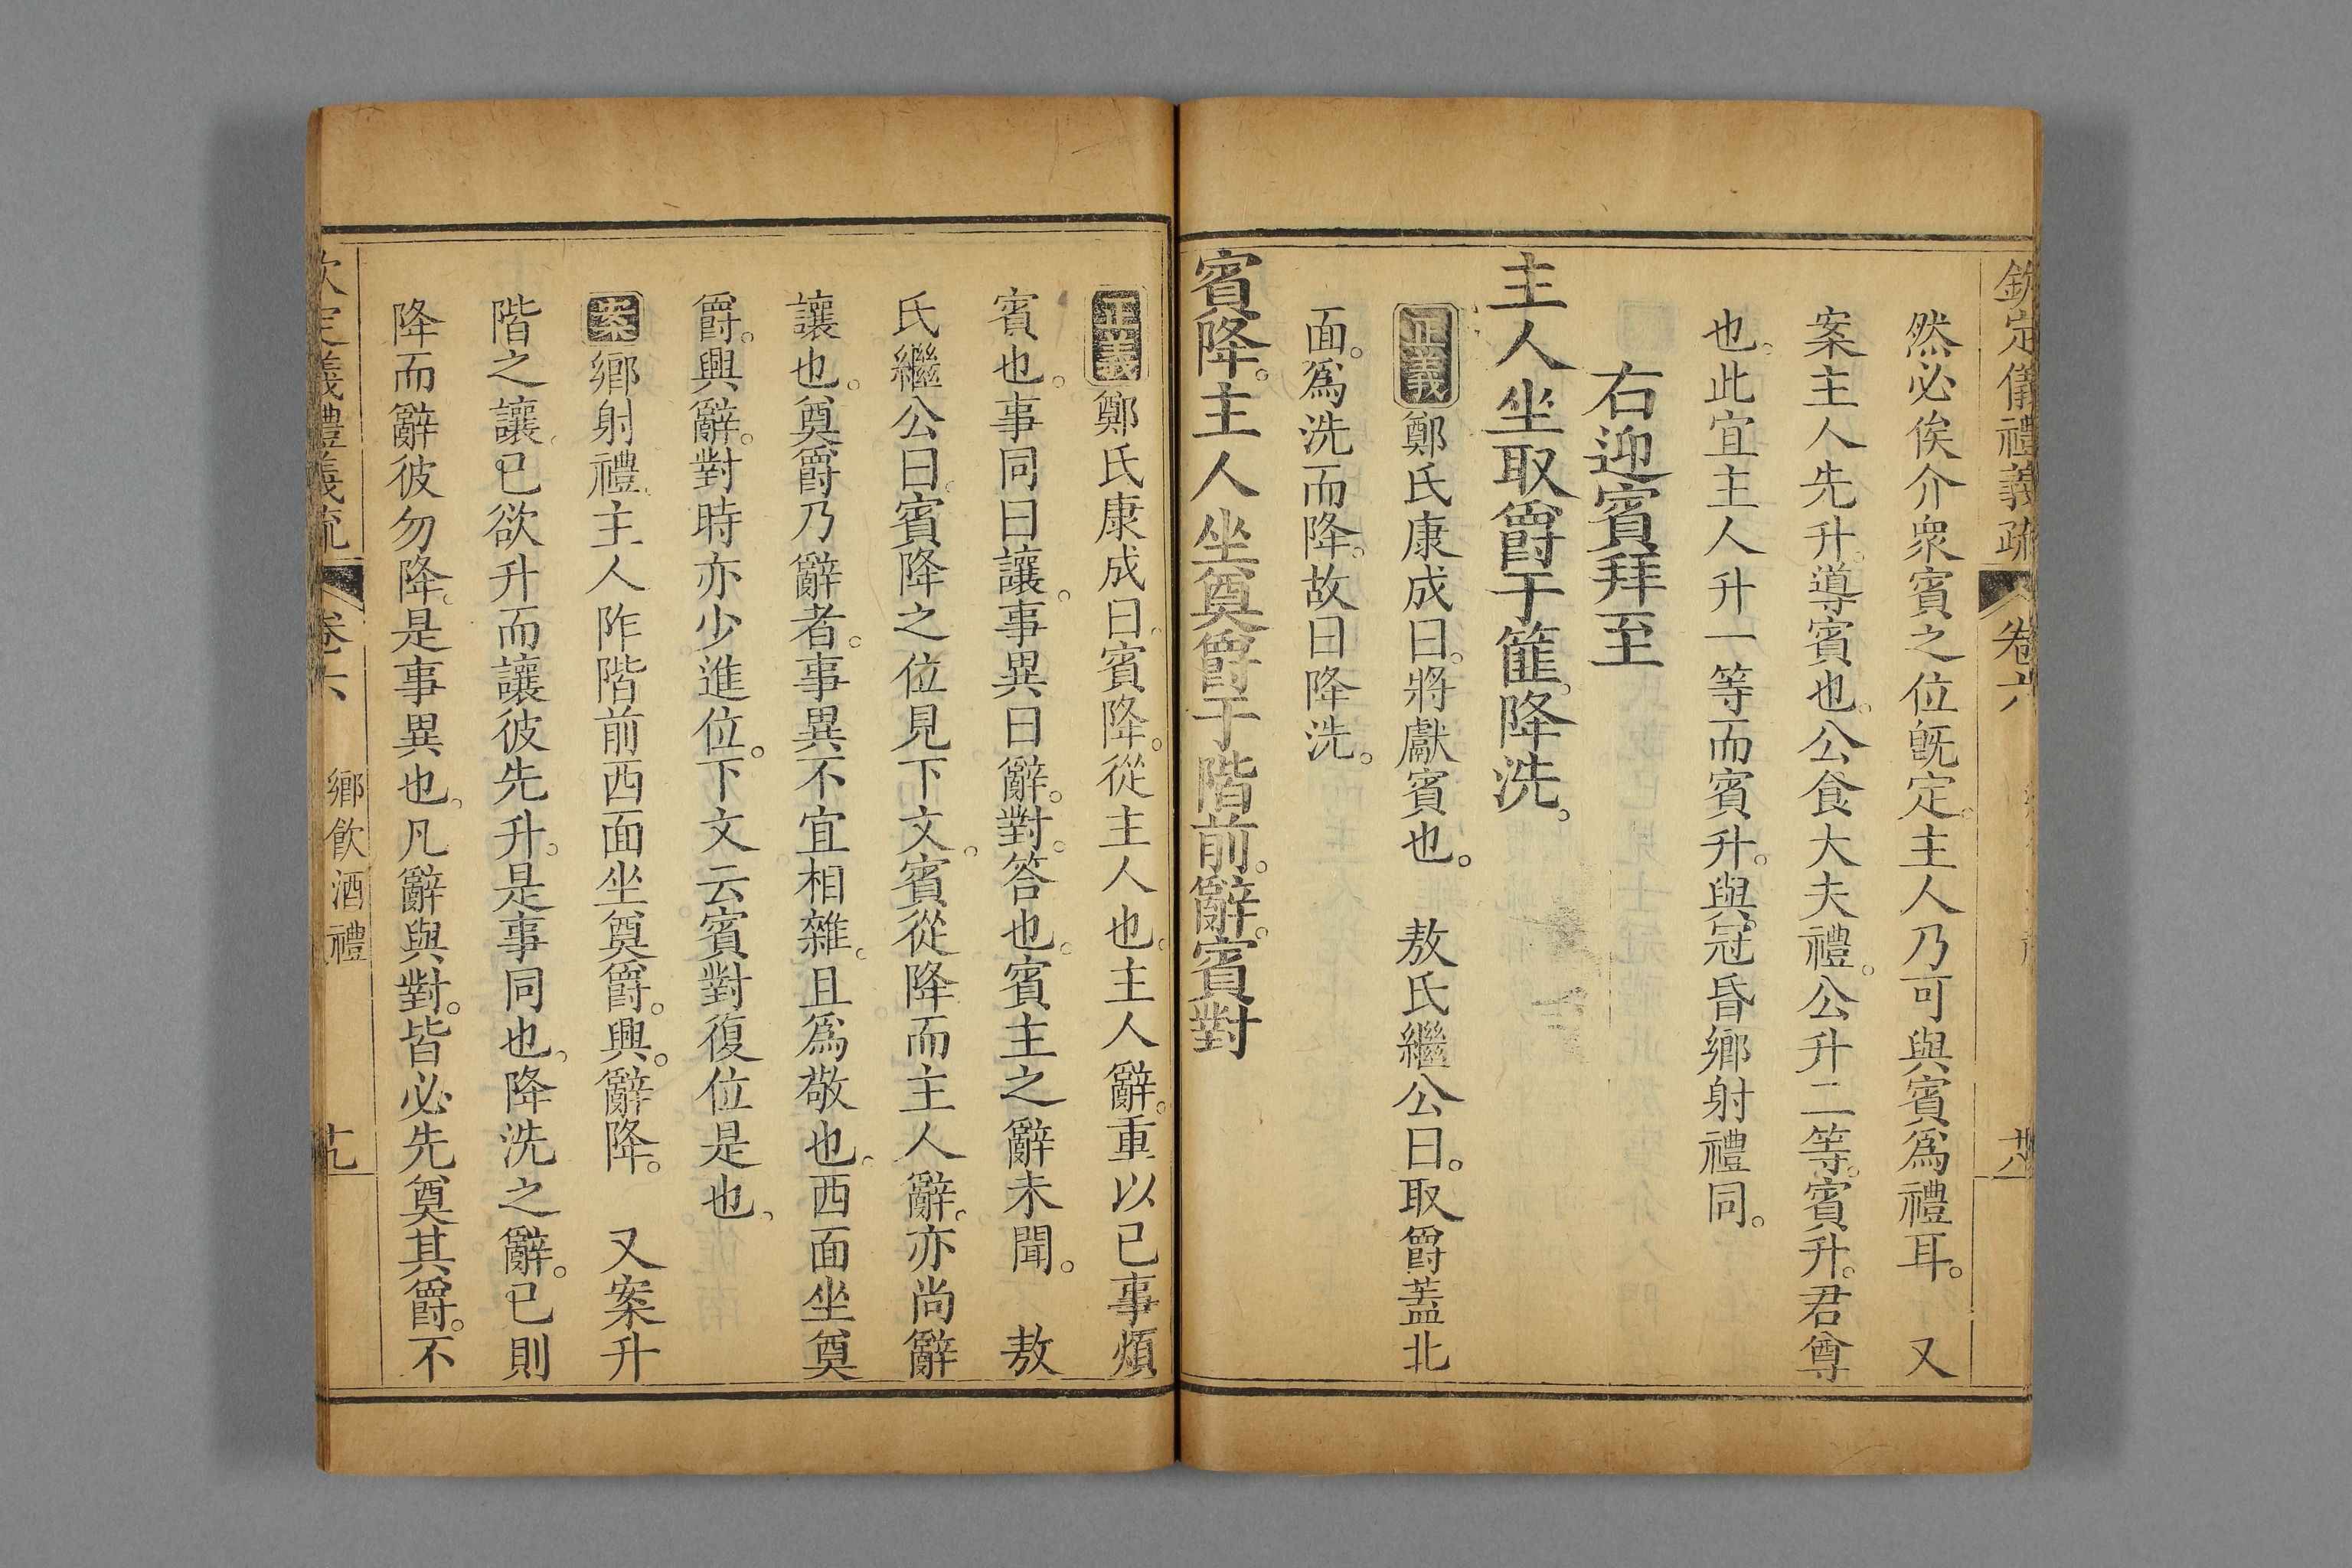 欽定儀禮義疏 卷六
然必俟介衆賓之位旣定。主人乃可與賓爲禮耳。 又
案主人先升。導賓也。公食大夫禮。公升二等。賓升。君尊
也。此宜主人升一等而賓升。與冠昏鄉射禮同。
右迎賓拜至
主人坐取爵于篚。降洗。
正義 鄭氏康成曰。將獻賓也。 敖氏繼公曰。取爵蓋北
面。爲洗而降。故曰降洗。
賓降。主人坐奠爵于階前。辭。賓對
正義 鄭氏康成曰。賓降。從主人也。主人辭。重以己事煩
賓也。事同曰讓。事異曰辭。對。答也。賓主之辭未聞。 敖
氏繼公曰。賓降之位見下文。賓從降而主人辭。亦尚辭
讓也。奠爵乃辭者。事異不宜相雜。且爲敬也。西面坐奠
爵。興辭。對時亦少進位。下文云賓對復位是也。
案 鄉射禮。主人阼階前西面坐奠爵。興。辭降。 又案升
階之讓。已欲升而讓彼先升。是事同也。降洗之辭。已則
降而辭彼勿降。是事異也。凡辭與對。皆必先奠其爵。不
義禮義疏 卷六 鄉飲酒禮